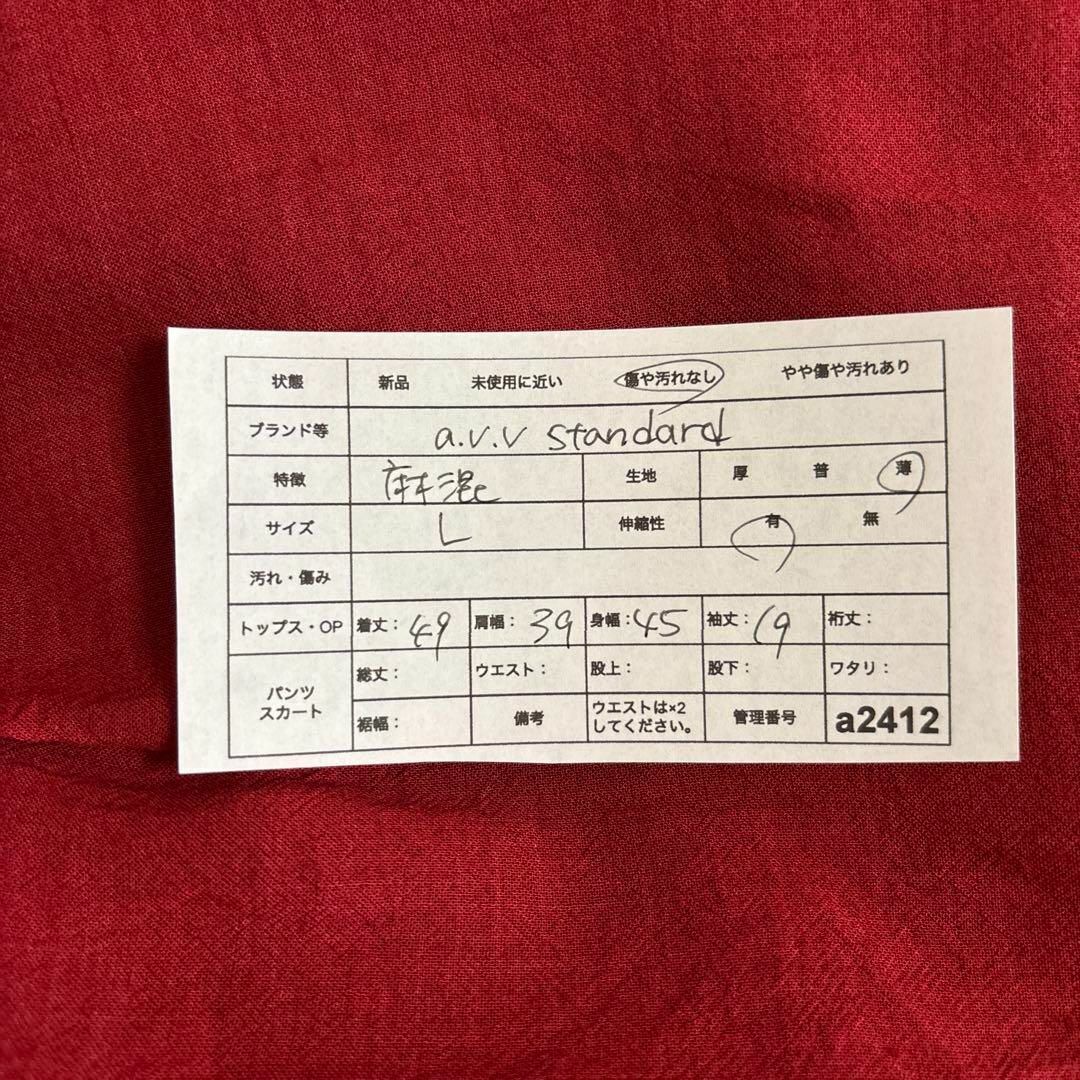 状態 新品 未使用に近い 傷や汚れなし やや傷や汚れあり
ブランド等 a.v.v standard
特徴 麻混 生地 厚 普 薄
サイズ L 伸縮性 有 無
汚れ・傷み
トップス・OP 着丈: 49 肩幅: 39 身幅: 45 袖丈: 19 裄丈:
パンツ スカート
総丈: ウエスト: 股上: 股下: ワタリ:
裾幅: 備考 ウエストは×2 してください。 管理番号 a2412